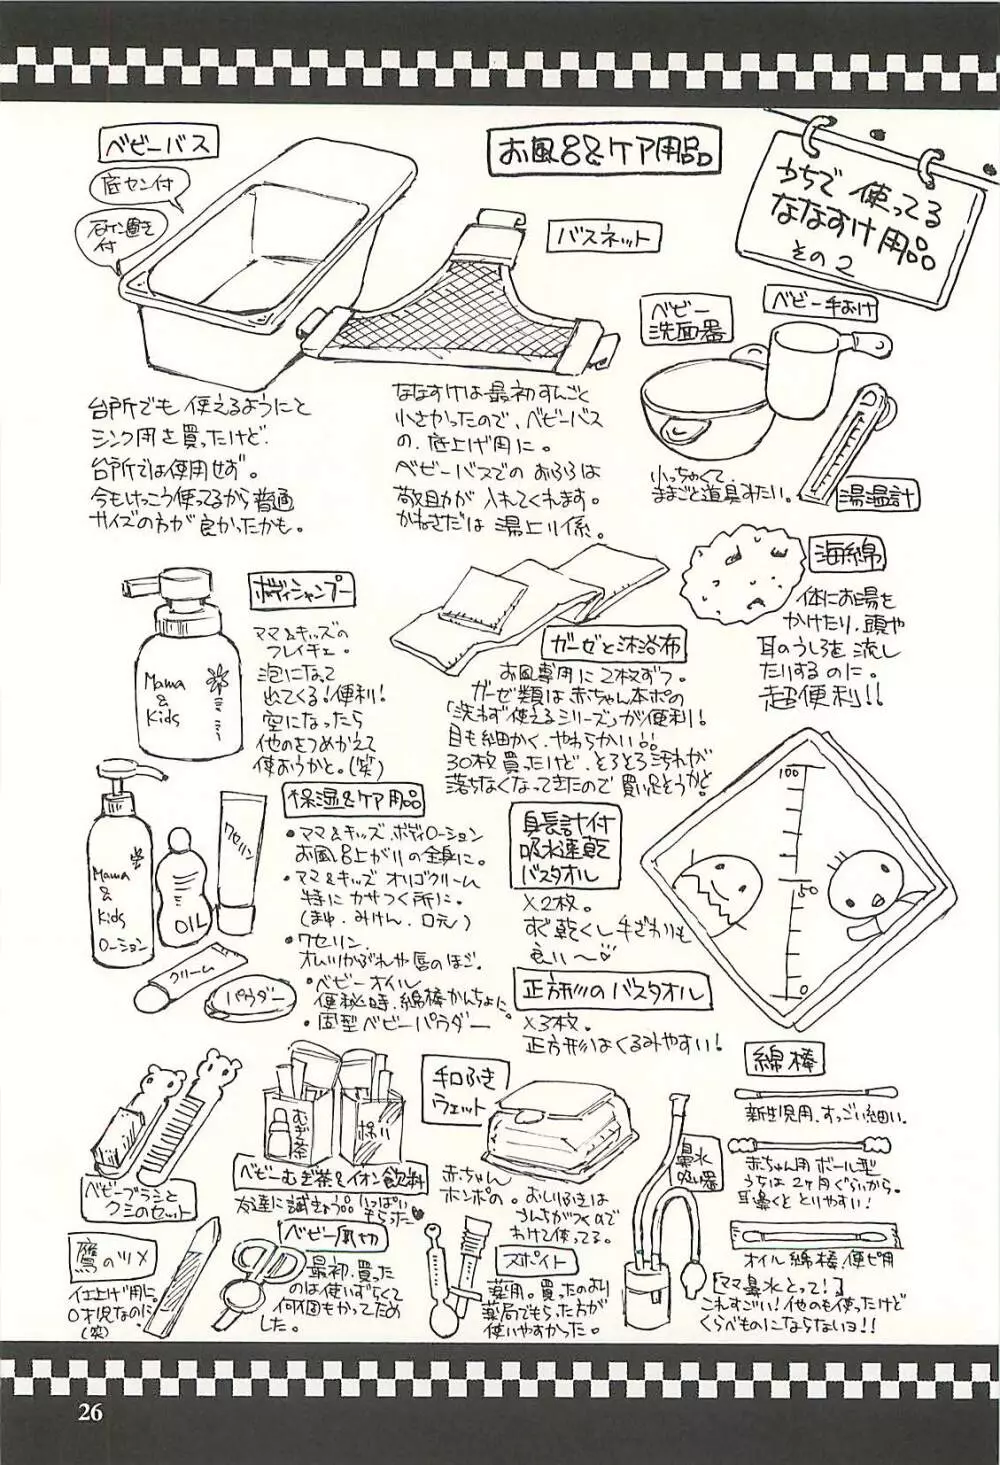 うちで使ってる
ななすけ用品
その2
お風呂&ケア用品
ベビーバス
底セン付
石ケン置き
付
台所でも使えるようにと
シンク用を買ったけど
台所では使用せず。
今もけっこう使ってるから普通
サイズの方が良かったかも。
バスネット
ななすけは最初すんごく
小さかったので、ベビーバス
の、底上げ用に。
ベビーバスでのおふろは
敬助が入れてくれます。
かねさだは湯上り係。
ベビー
洗面器
ベビー手おけ
小っちゃくて、
ままごと道具みたい。
湯温計
海綿
体にお湯を
かけたり、頭や
耳のうしろを流し
たりするのに。
超便利!!
ボディシャンプー
Mama
&
Kids
ママ&キッズの
フレイチェ。
泡になって
出てくる!便利!
空になったら
他のをつめかえて
使おうかと。(笑)
ガーゼと沐浴布
お風呂専用に2枚ずつ。
ガーゼ類は赤ちゃん本ポの
「洗わず使えるシリーズ」が便利!
目も細かく、やわらかい!!
30枚買ったけど、とろとろ汚れが
落ちなくなってきたので買い足そうかと。
保湿&ケア用品
・ママ&キッズ ボディローション
お風呂上がりの全身に。
・ママ&キッズ オリゴクリーム
特にカサつく所に。
(まゆ・みけん・口元)
・ワセリン
オムツかぶれや唇のほご。
・ベビーオイル
便秘時、綿棒かんちょに。
・固型ベビーパウダー
Mama
&
Kids
ローション
OIL
ワセリン
クリーム
パウダー
身長計付
吸水速乾
バスタオル
×2枚。
すぐ乾くし手ざわりも
良い〜♡
正方形のバスタオル
×3枚。
正方形はくるみやすい!
100
50
0
ベビーブラシと
クシのセット
むぎ茶
ベビーむぎ茶&イオン飲料
友達に試きょう品いっぱい
もらった♥
手口ふき
ウェット
赤ちゃん
ホンポの。
おしりふきは
うんちがつくので
わけて使ってる。
鼻水
吸い器
「ママ鼻水とって!」
これすごい!他のも使ったけど
くらべものにならないヨ!!
綿棒
新生児用、すっごい細い。
赤ちゃん用ボール型
うちは2ヶ月ぐらいから。
耳鼻くととりやすい!
オイル綿棒、便ピ用
鷹のツメ
仕上げ用に。
0才児なのに
(笑)
ベビー爪切
最初、買った
のは使いずらくて
何個もかってため
した。
スポイト
薬用。買ったのより
薬局でもらった方が
使いやすかった。
26